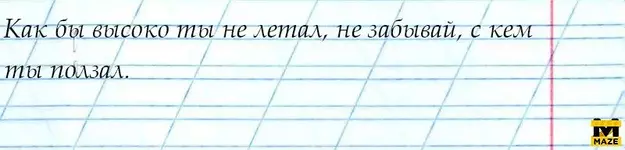 Как бы высоко ты не летал, не забывай, с кем
ты ползал.
M
MAZE